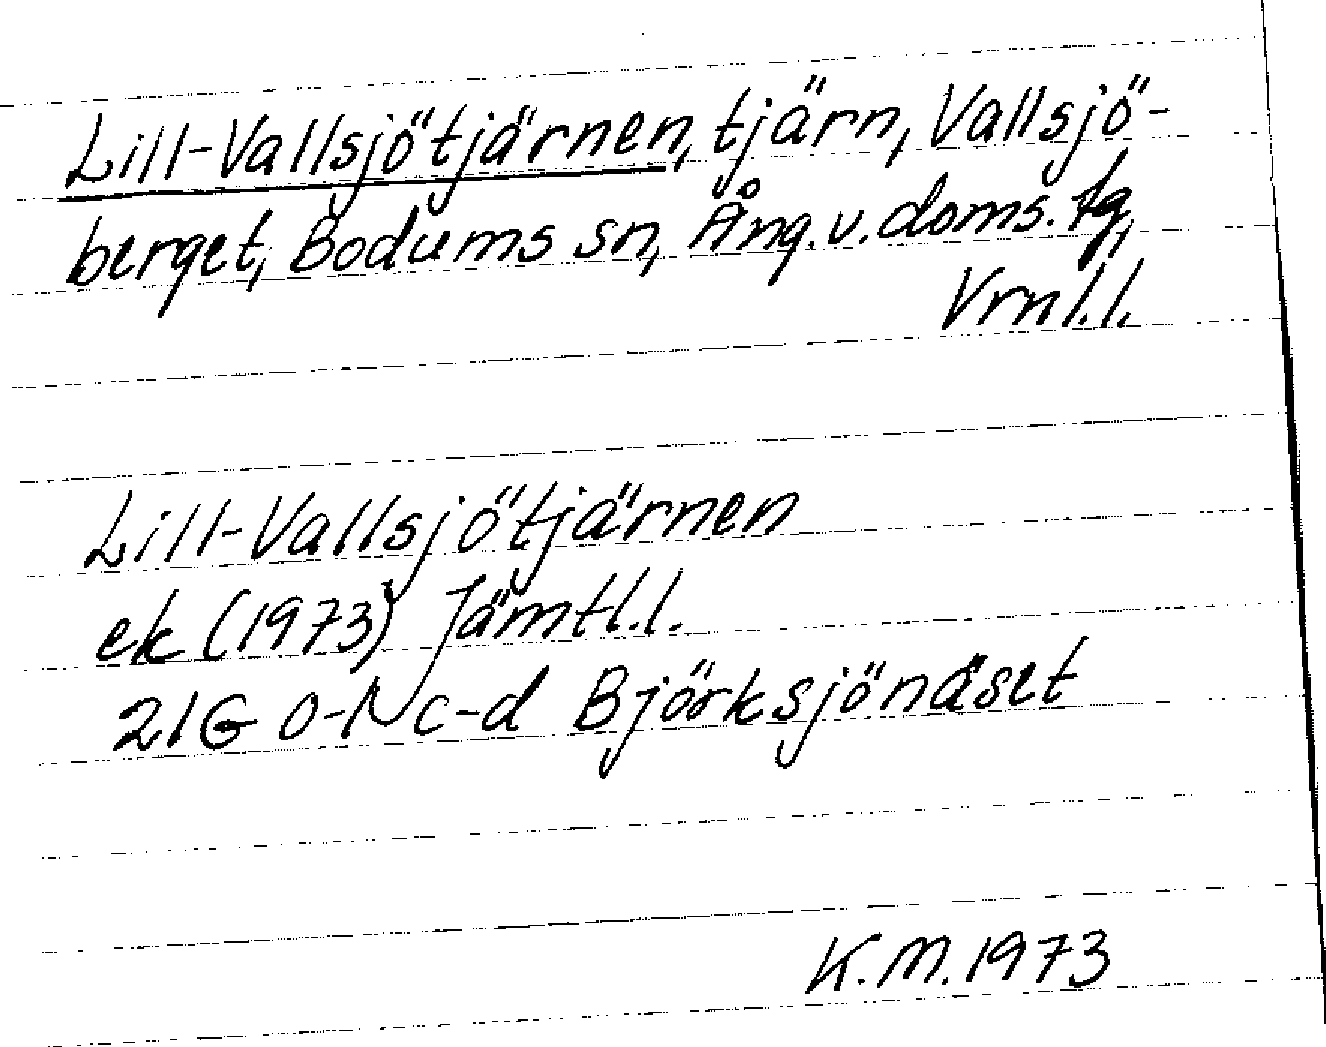 Lill-Vallsjötjärnen, tjärn, Vallsjö-
berget, Bodums sn, Ång. v. doms. tg,
Vrnl.l.
Lill-Vallsjötjärnen
ek (1973) Jämtl.l.
21G 0-1 c-d Björksjönäset
K.M. 1973